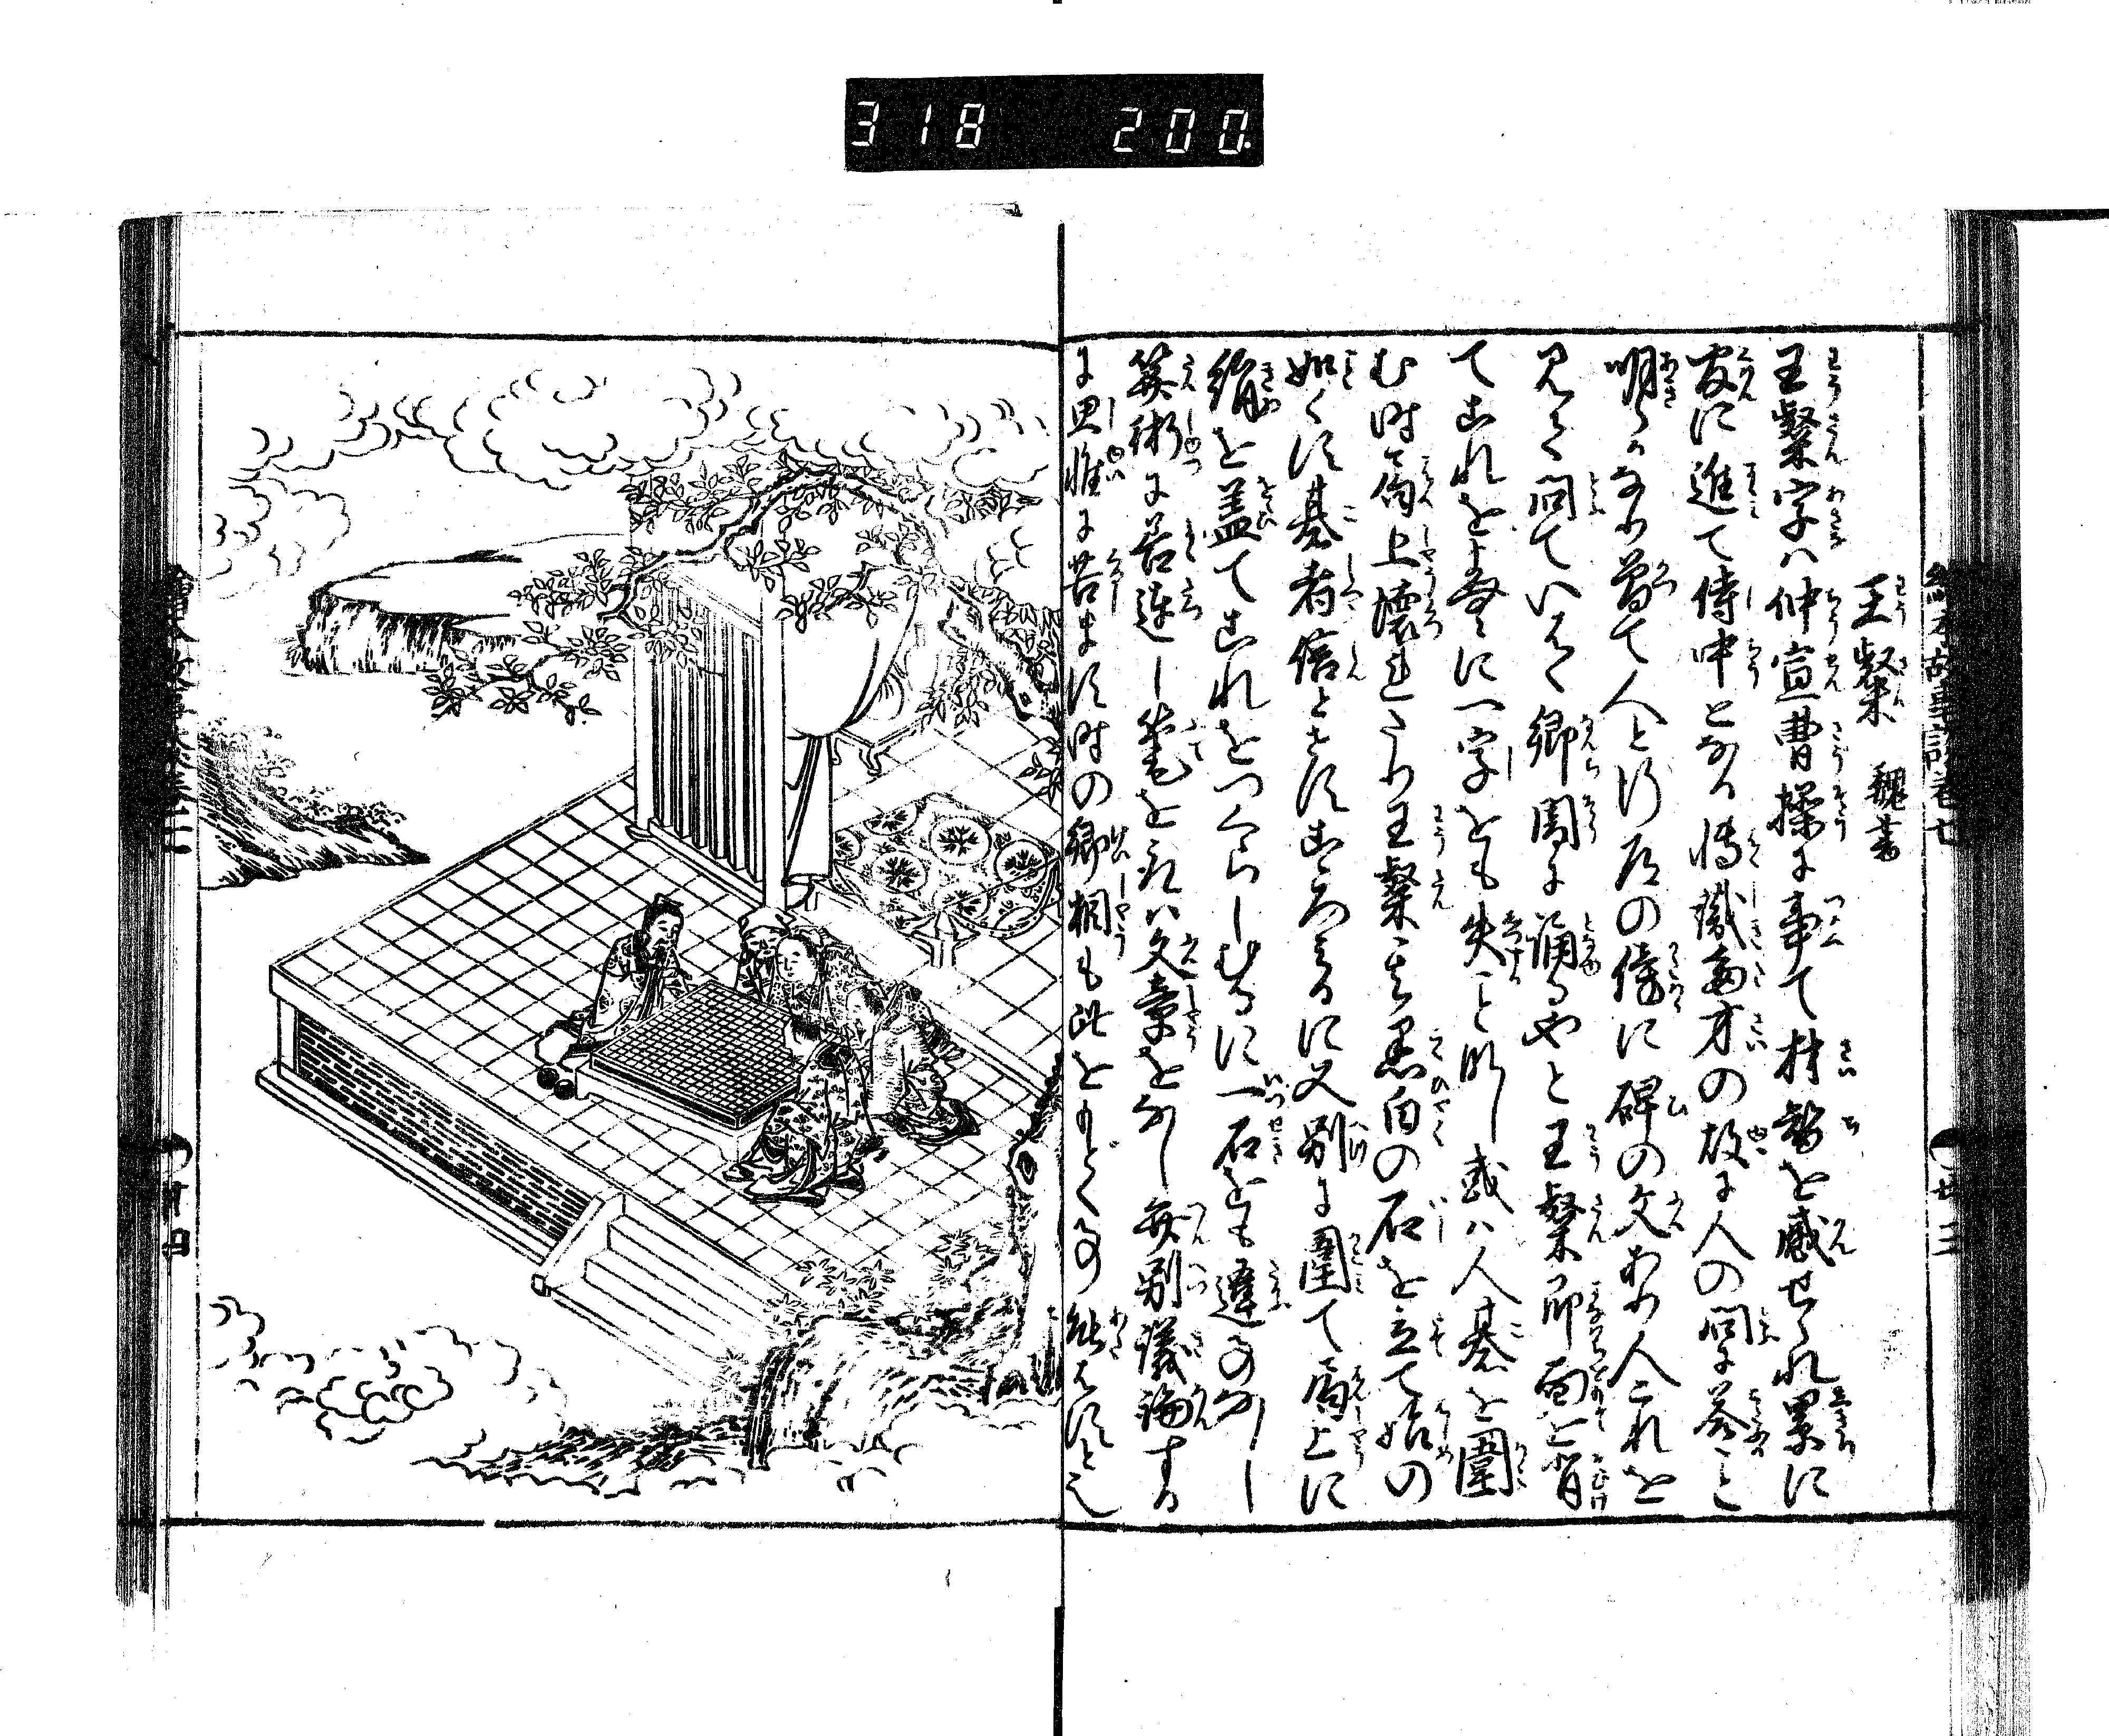 318 200
絵本故事談巻七
王粲 魏書
王粲字ハ仲宣曹操に事て材智を感せられ累に
官に進て侍中となる博識多才の故に人の問に答こと
明らかなり曽て人と行道の傍に碑の文あり人これを
見て問ていはく卿闇に誦るやと王粲即面を背
てこれをよむに一字をも失こと
 或ハ人碁を囲
む時局上壊
たり王粲其黒白の石を立て始の
如くす碁者信とせすこゝろみるに又別に囲て局上に
絹を蓋てこれをつくらしむるに一石をも違るなし
算術に善達し筆を
ハ文章をなし
議論する
に思惟に苦ます時の卿相も此を
能はすと也
廿三
廿四